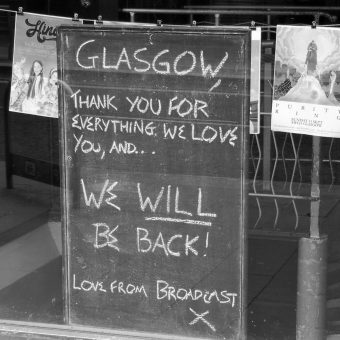 GLASGOW,
THANK YOU FOR
EVERYTHING. WE LOVE
YOU, AND...
WE WILL
BE BACK!
LOVE FROM BROADCAST
X
PURITY
RING